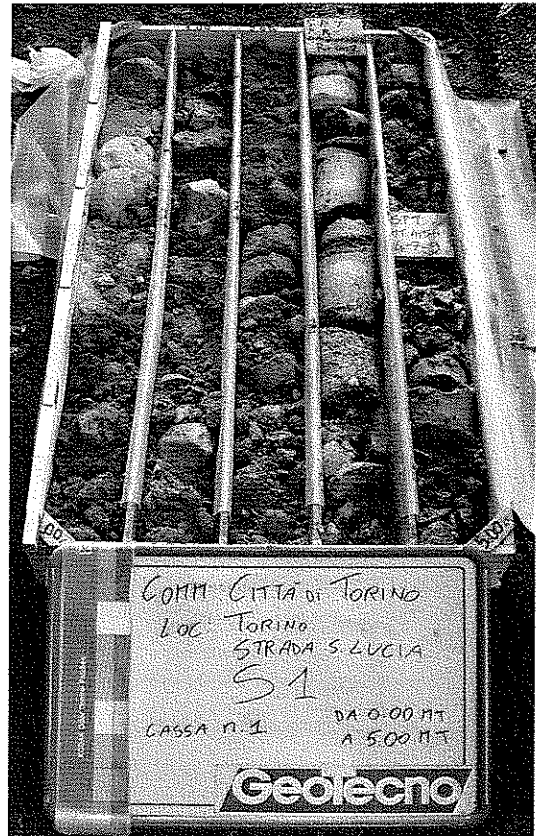 COMM CITTÀ DI TORINO
LOC TORINO
STRADA S. LUCIA
S1
CASSA n. 1
DA 0.00 MT
A 5.00 MT
Geotecno
.00
5.00